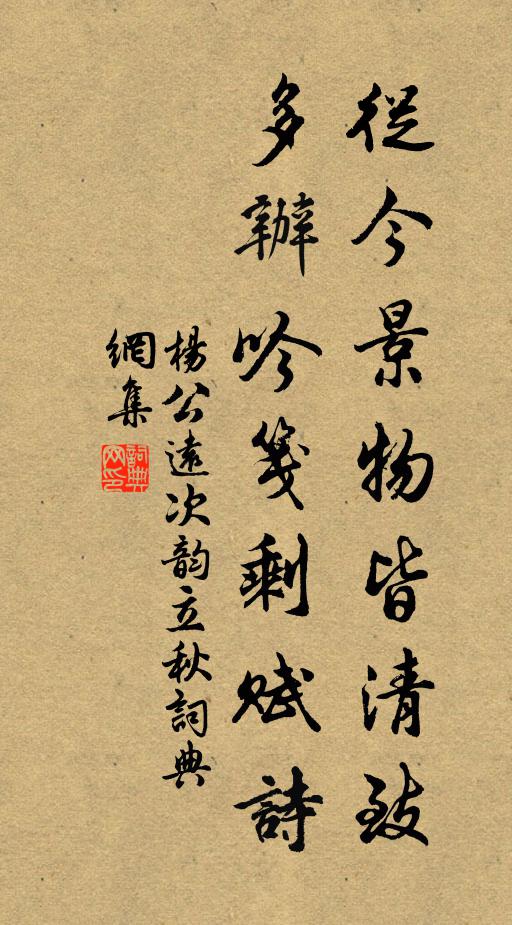 從今景物皆清致
多辦吟箋剩賦詩
楊公遠次韵立秋詞典
網集
詞典网印